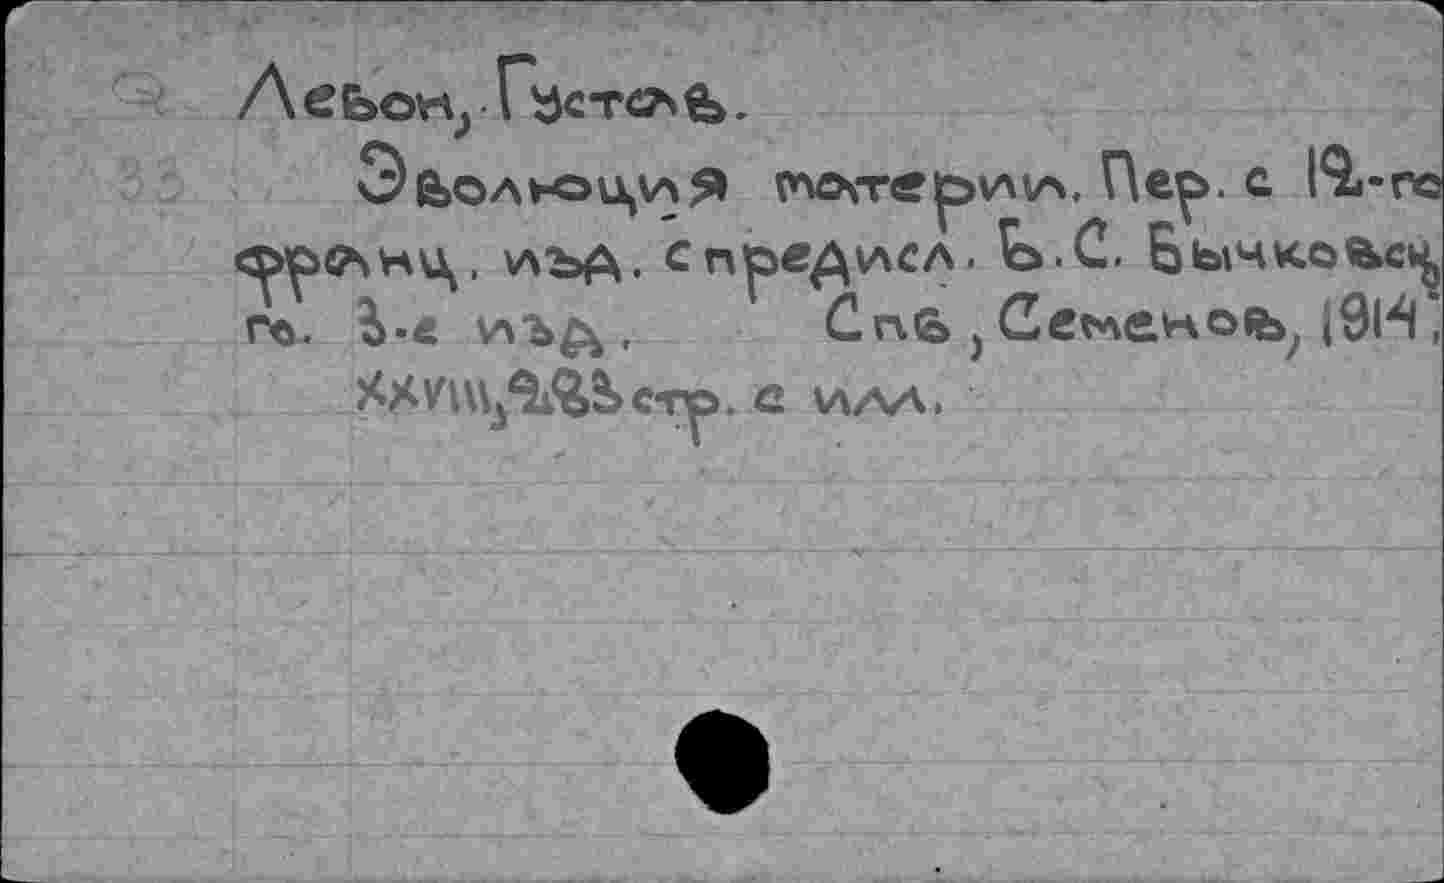 Лебон, Густав.
Эволюция материи. Пер. с 12-го
франц. изд. с предисл. Б.С. Бычковск
го. 3-е изд. Спб, Семенов, 1914,
XXVIII, 223 стр. с илл.